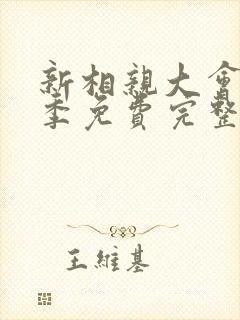 新相親大會
季免費完整
王維基